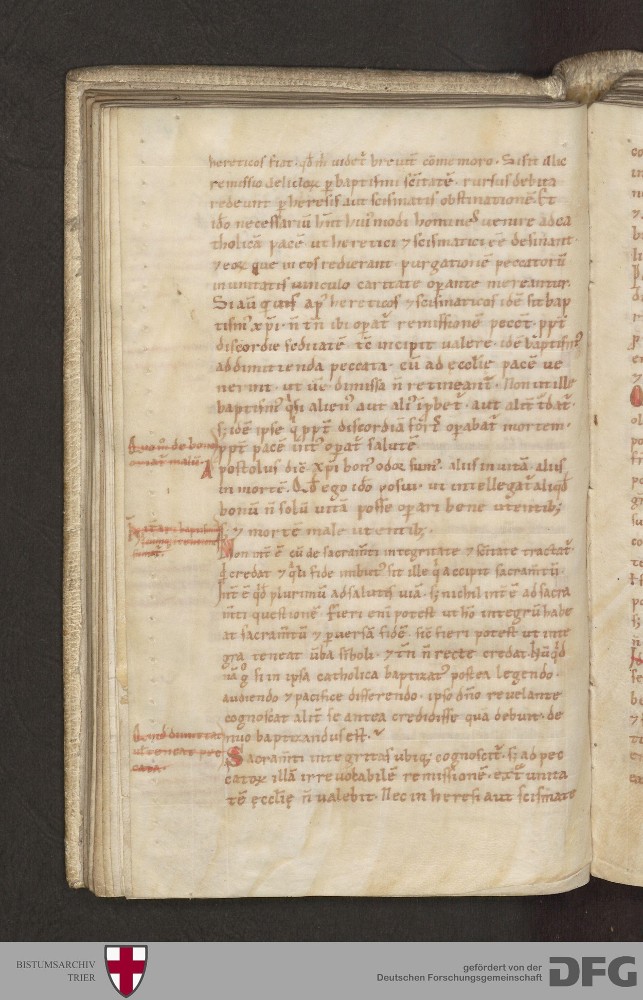 hereticos fiat · qd̄m̄ uidet᷑ breuit̄ cōmemoro · Si sit illic
remissio delictoꝝ ꝑ baptismi sc̄itatē · rursus debita
redeunt ꝑ heresis aut scismatis obstinationē · Et
ido necessariū hn̄t hui᷒modi homines uenire ad ca
tholicā pacē ut heretici ⁊ scismatici eē desinant ·
⁊ eoꝝ que in eos redierant · purgationē peccatorū
in unitatis uinculo caritate oꝑante mereantur.
Si aū quis ap᷒ hereticos ⁊ scismaticos idē sit bap
tism᷒ xp̄i · n̄ tn̄ ibi oꝑat᷑ remissionē peccat̄ · ꝓpt̄
discordie feditatē tē incipit ualere · idē baptism᷒
ad dimittenda peccata · cū ad ecclie pacē ue
nerint · ut ūe dimissa n̄ retineant᷑ · Non ut ille
baptism᷒ q̄si alien᷒ aut ali᷒ iꝑbet᷑ · aut alit̄ t̄dat᷑ ·
sꝫ idē ipse q̄ ꝓpt̄ discordiā foris oꝑabat᷑ mortem ·
ꝓpt̄ pacē int᷒ oꝑat᷑ salutē
Quom̄ de bono
oriat᷑ malū ·
Apostolus dic̄ xp̄i bon᷒ odor sum᷒ · aliis in uitā · aliis
in mortē · Qd̄ ego ido posui · ut intellegat᷑ aliqd̄
bonū n̄ solū uitā posse oꝑari bene utentibꝫ
sꝫ ⁊ mortē male utentibꝫ ·
Non int̄ ē cū de sacram̄ti integritate ⁊ sc̄itate tractat᷑ ·
qd̄ credat ⁊ q̄li fide imbut᷒ sit ille q̄ accipit sacram̄tū ·
Int̄ ē qd̄ plurimū ad salutis uiā · sꝫ nichil int̄ ē ad sacra
m̄ti questionē · Fieri eni potest ut hō integrū habe
at sacram̄tū ⁊ ꝑuersā fidē · sic̄ fieri potest ut inte
gra teneat ūba sīboli · ⁊ tn̄ n̄ recte credat ·
si in ipsa catholica baptizat᷒ postea legendo ·
audiendo ⁊ pacifice disserendo · ipso dn̄o reuelante
cognoscat alit̄ se antea credidisse quā debuit · de
nuo baptizandus est ·
Quomō dimittat
ul̄ teneat pec
cata ·
Sacram̄ti integritas ubiqꝫ cognoscit᷑ · sꝫ ad pec
catoꝝ illā irreuocabilē remissionē · ext᷑ unita
tē ęcclię n̄ ualebit · Nec in heresi aut scismate
BISTUMSARCHIV
TRIER
gefördert von der
Deutschen Forschungsgemeinschaft
DFG